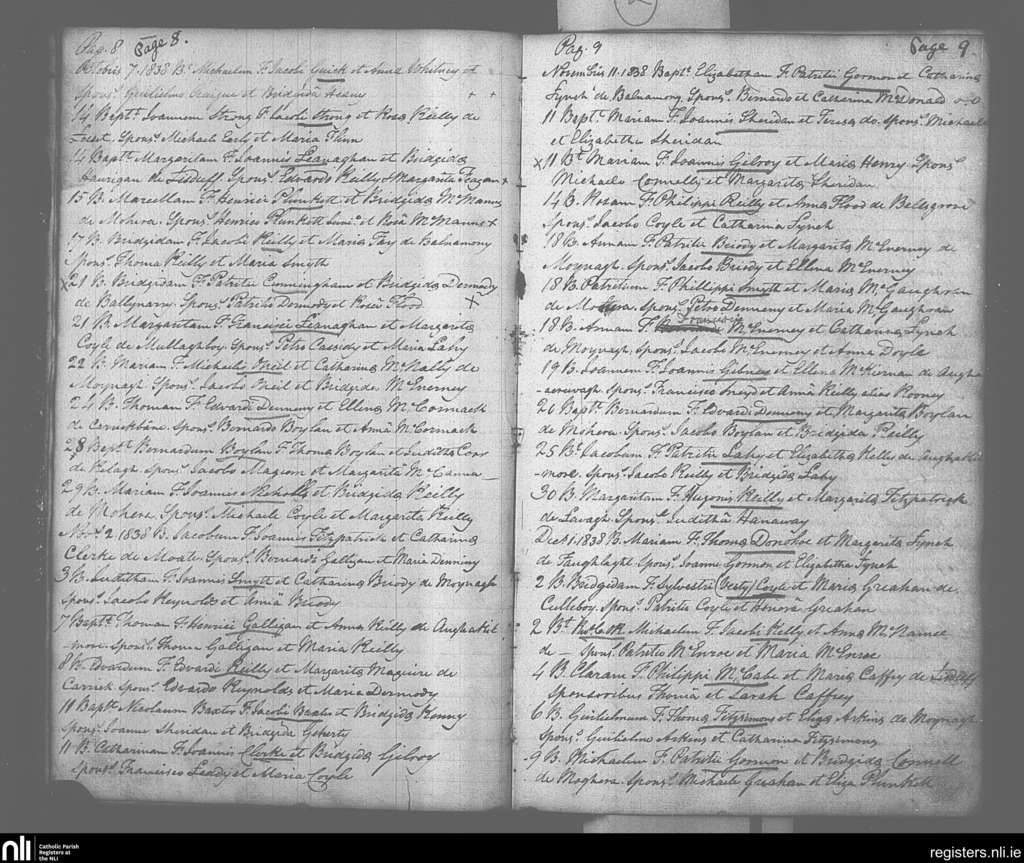 Pag. 8 Page 8.
Octobris 7. 1838 Bt. Michaelem F. Jacobi Quick et Anna Whitney et
Sponsr. Gulielmus et Bridgidâ
14 Bapt. Joannem Strong F. Jacobi Strong et Rosa Reilly de
Sponsr. Michael Early et Maria Flinn
14 Baptt. Margaritam F. Joannis Leavaghan et Bridgida
Hourigan de Sponsr. Edvardo Reilly & Margarita Fagan +
15 B. Marcellam F. Henrici Plunkett et Bridgida McManus
de Mohera. Sponsr. Henrico Plunkett Junr. et Rosâ McManus +
17 B. Bridgidam F. Jacobi Reilly et Maria Fay de Balnamony
Sponsr. Thoma Reilly et Maria Smyth
x 21 B. Bridgidam F. Patritii Cunningham et Bridgida Dermody
de Ballynarry Sponsr. Patritio Dermody et Rosâ Flood +
21 B. Margaritam F. Francisci Leanaghan et Margarita
Coyle de Mullaghboy Sponsr. Petro Cassidy et Maria Lahy
22 B. Mariam F. Michaelis Neil et Catharina McNally de
Moynagh Sponsr. Jacobo Neil et Bridgida McEnerney
24 B. Thomam F. Edvardi Denneny et Ellena McCormack
de Carrickbine. Sponsr. Bernardo Boylan et Annâ McCormack
28 Bapt. Bernardum Boylan F. Thoma Boylan et Juditha Corr
de Kilagh Sponsr. Jacobo Magiorn et Margarita McCanna
29 B. Mariam F. Joannis Nicholls et Bridgida Reilly
de Mohera. Sponsr. Michaele Coyle et Margarita Reilly
Novr. 2. 1838 B. Jacobum F. Joannis Fitzpatrick et Catharina
Clerke de Moate Sponsr. Bernardo Galligan et Maria Denning
3 B. Juditham F. Joannis Smyth et Catharina Briody de Moynagh
Sponsr. Jacobo Reynolds et Annâ Briody
7 Baptt. Thomam F. Henrici Galligan et Anna Reilly de Aughakil
-more. Sponsr. Thoma Galligan et Maria Reilly
8 B. Edvardum F. Edvardi Reilly et Margarita Maguire de
Carrick Sponsr. Edvardo Reynolds et Maria Dermody
10 Baptt. Nicolaum Baxter F. Jacobi Baxter et Bridgida Kenny
Sponsr. Joanne Sheridan et Bridgida Geherty
11 B. Catharinam F. Joannis Clerke et Bridgida Gilroy
Sponsr. Francisco Leddy et Maria Coyle
Pag. 9 Page 9.
Novembris 11. 1838 Bapt. Elizabetham F. Patritii Gormon et Catharina
Lynch de Balnamony Sponsr. Bernardo et Catherina McDonald
11 Baptt. Mariam F. Joannis Sheridan et Teresa do. Sponsr. Michaele
et Elizabetha Sheridan
x 11 Bt. Mariam F. Joannis Gilroy et Maria Henry. Sponsr.
Michaele Connelly et Margarita Sheridan
14 B. Rosam F. Philippi Reilly et Anna Flood de Bellsgrove
Sponsr. Jacobo Coyle et Catharina Lynch
18 B. Annam F. Patritii Briody et Margarita McEnerney de
Moynagh. Sponsr. Jacobo Briody et Ellena McEnerney
18 B. Patritium F. Phillippi Smyth et Maria McGaughran
de Mohera. Sponsr. Petro Denneny et Maria McGaughran
18 B. Annam F. Francisci McEnerney et Catharina Lynch
de Moynagh. Sponsr. Jacobo McEnerney et Anna Doyle
19 B. Joannem F. Joannis Gibney et Ellena McKiernan de Augha
-Sponsr. Francisco et Annâ Reilly alias Rooney
20 Baptt. Bernardum F. Edvardi Denneny et Margarita Boylan
de Mohera. Sponsr. Jacobo Boylan et Bridgida Reilly
25 Bt. Jacobum F. Patritii Lahy et Elizabetha Kelly de Aughakil
-more. Sponsr. Jacobo Reilly et Bridgida Lahy
30 B. Margaritam F. Hugonis Reilly et Margarita Fitzpatrick
de Lavagh Sponsr. Judithâ Hanaway
Decr. 1. 1838 B. Mariam F. Thoma Donohoe et Margarita Lynch
de Faughlaght Sponsr. Joanne Gormon et Elizabetha Lynch
2 B. Bridgidam F. Sylvestri (Vesty) Coyle et Maria Greahan de
Culleboy. Sponsr. Patritio Coyle et Honora Greahan
2 Bt. Michaelem F. Jacobi Kelly et Anna McNamee
de — Sponsr. Patritio McEnroe et Maria McEnroe
4 B. Claram F. Philippi McCabe et Maria Caffry de
Sponsoribus Thomâ et Sarah Caffrey
6 B. Gulielmum F. Thoma Fitzsimons et Eliza Askins de Moynagh
Sponsr. Gulielmo Askins et Catharina Fitzsimons
9 B. Michaelem F. Patritii Gormon et Bridgida Connell
de Moghera Sponsr. Michaele Greahan et Eliza Plunkett
nli Catholic Parish
Registers at
the NLI
registers.nli.ie